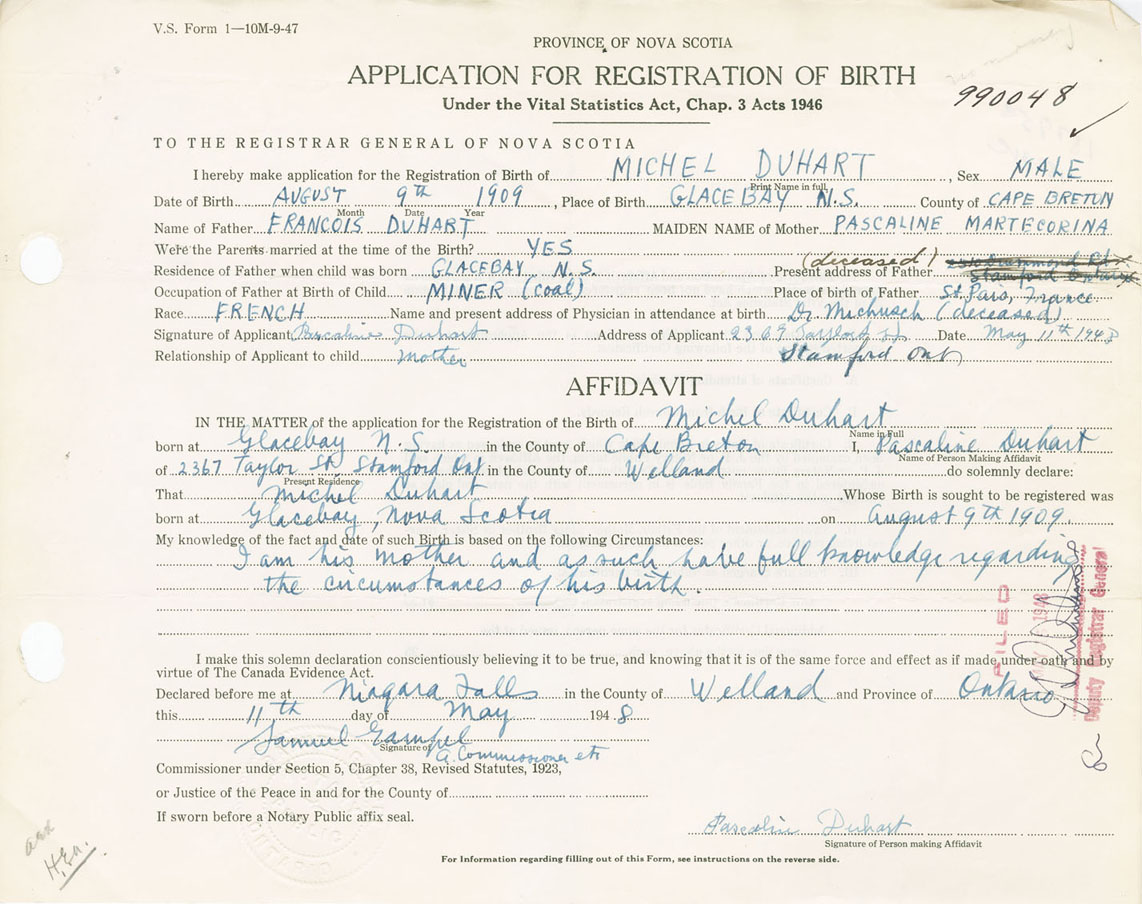 V.S. Form 1—10M-9-47
PROVINCE OF NOVA SCOTIA
APPLICATION FOR REGISTRATION OF BIRTH
Under the Vital Statistics Act, Chap. 3 Acts 1946
990048
TO THE REGISTRAR GENERAL OF NOVA SCOTIA
I hereby make application for the Registration of Birth of MICHEL DUHART, Sex MALE
Print Name in full
Date of Birth AUGUST 9th 1909, Place of Birth GLACEBAY N.S. County of CAPE BRETON
Month Date Year
Name of Father FRANCOIS DUHART MAIDEN NAME of Mother PASCALINE MARTECORINA
Were the Parents married at the time of the Birth? YES
Residence of Father when child was born GLACEBAY N.S. Present address of Father (deceased)
Occupation of Father at Birth of Child MINER (coal) Place of birth of Father St. Pais, France
Race FRENCH Name and present address of Physician in attendance at birth Dr. Michusch (deceased)
Signature of Applicant Pascaline Duhart Address of Applicant Date May 11th 1948
Relationship of Applicant to child Mother Stamford Ont
AFFIDAVIT
IN THE MATTER of the application for the Registration of the Birth of Michel Duhart
Name in Full
born at Glacebay N.S. in the County of Cape Breton I, Pascaline Duhart
Name of Person Making Affidavit
of 2367 Taylor St. Stamford Ont in the County of Welland do solemnly declare:
Present Residence
That Michel Duhart Whose Birth is sought to be registered was
born at Glacebay, Nova Scotia on August 9th 1909.
My knowledge of the fact and date of such Birth is based on the following Circumstances:
I am his mother and as such have full knowledge regarding
the circumstances of his birth.
FILED
1948
Deputy Registrar General
I make this solemn declaration conscientiously believing it to be true, and knowing that it is of the same force and effect as if made under oath and by
virtue of The Canada Evidence Act.
Declared before me at Niagara Falls in the County of Welland and Province of Ontario
this 11th day of May 1948
Samuel Gampel
Signature of
A Commissioner etc
Commissioner under Section 5, Chapter 38, Revised Statutes, 1923,
or Justice of the Peace in and for the County of
If sworn before a Notary Public affix seal.
Pascaline Duhart
Signature of Person making Affidavit
For Information regarding filling out of this Form, see instructions on the reverse side.